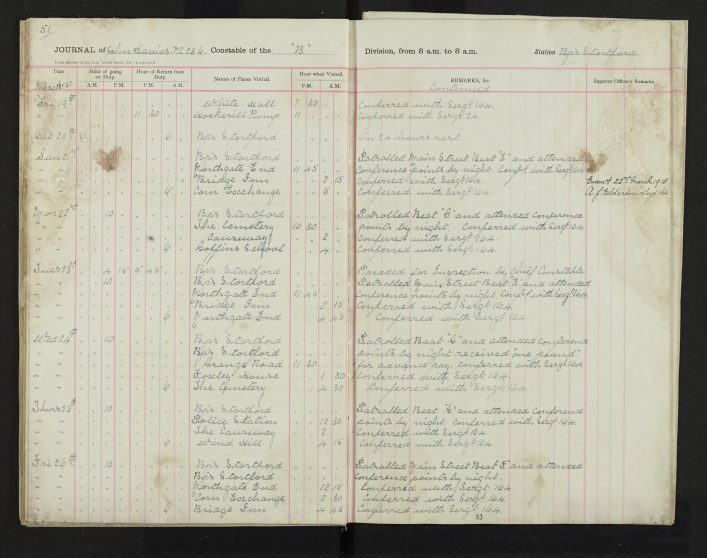 51
JOURNAL of John Davies P.C. 236. Constable of the "B" Division, from 8 a.m. to 8 a.m. Station Bp's Stortford
Date Hour of going on Duty. Hour of Return from Duty. Names of Places Visited. Hour when Visited. REMARKS, &c. Superior Officer's Remarks.
A.M. P.M. P.M. A.M. P.M. A.M. Continued
Fri 19th White Hall 7 30 Conferred with Sergt 164.
" " 11 30 Hockerill Pump 11 Conferred with Sergt 24
Sat 20th 6 6 Bp's Stortford On 24 hours rest
Sun 21st Bp's Stortford Patrolled Main Street Beat "E" and attended
" " Northgate End 11 45 Conference points by night. Confd with Sergt 164
" " Bridge Inn 2 15 Conferred with Sergt 164. 22nd March 1915
" " 6 Corn Exchange 5 Conferred with Sergt 164.
Mon 22nd 10 Bp's Stortford Patrolled Beat and attended Conference
" " The Cemetery 10 30 points by night. Conferred with Sergt 164.
" " Causeway 2 Conferred with Sergt 164.
" " 6 School 4 Conferred with Sergt 164.
Tues 23rd 4 15 5 45 Bp's Stortford Paraded for Inspection by Chief Constable
" " 10 Bp's Stortford Patrolled Main Street Beat and attended
" " Northgate End 11 45 Conference points by night Conferd with Sergt 164
" " Bridge Inn 2 15 Conferred with Sergt 164
" " 6 Northgate End 4 45 Conferred with Sergt 164
Wed 24th 10 Bp's Stortford Patrolled Beat and attended Conference
" " Bp's Stortford points by night received "one pound"
" " Grange Road 11 30 for advance pay. conferred with Sergt 164
" " Foxley House 1 30 Conferred with Sergt 164
" " 6 The Cemetery 4 30 Conferred with Sergt 164.
Thurs 25th 10 Bp's Stortford Patrolled Beat and attended Conference
" " Police Station 12 30 points by night. conferred with Sergt 164.
" " The Causeway 2 Conferred with Sergt 164
" " 6 Wind Hill 4 15 Conferred with Sergt 164.
Fri 26th 10 Bp's Stortford Patrolled Main Street Beat and attended
" " Bp's Stortford Conference points by night.
" " Northgate End 12 15 Conferred with Sergt 164
" " Corn Exchange 2 30 Conferred with Sergt 164.
" " 6 Bridge Inn 4 45 Conferred with Sergt 164.
53